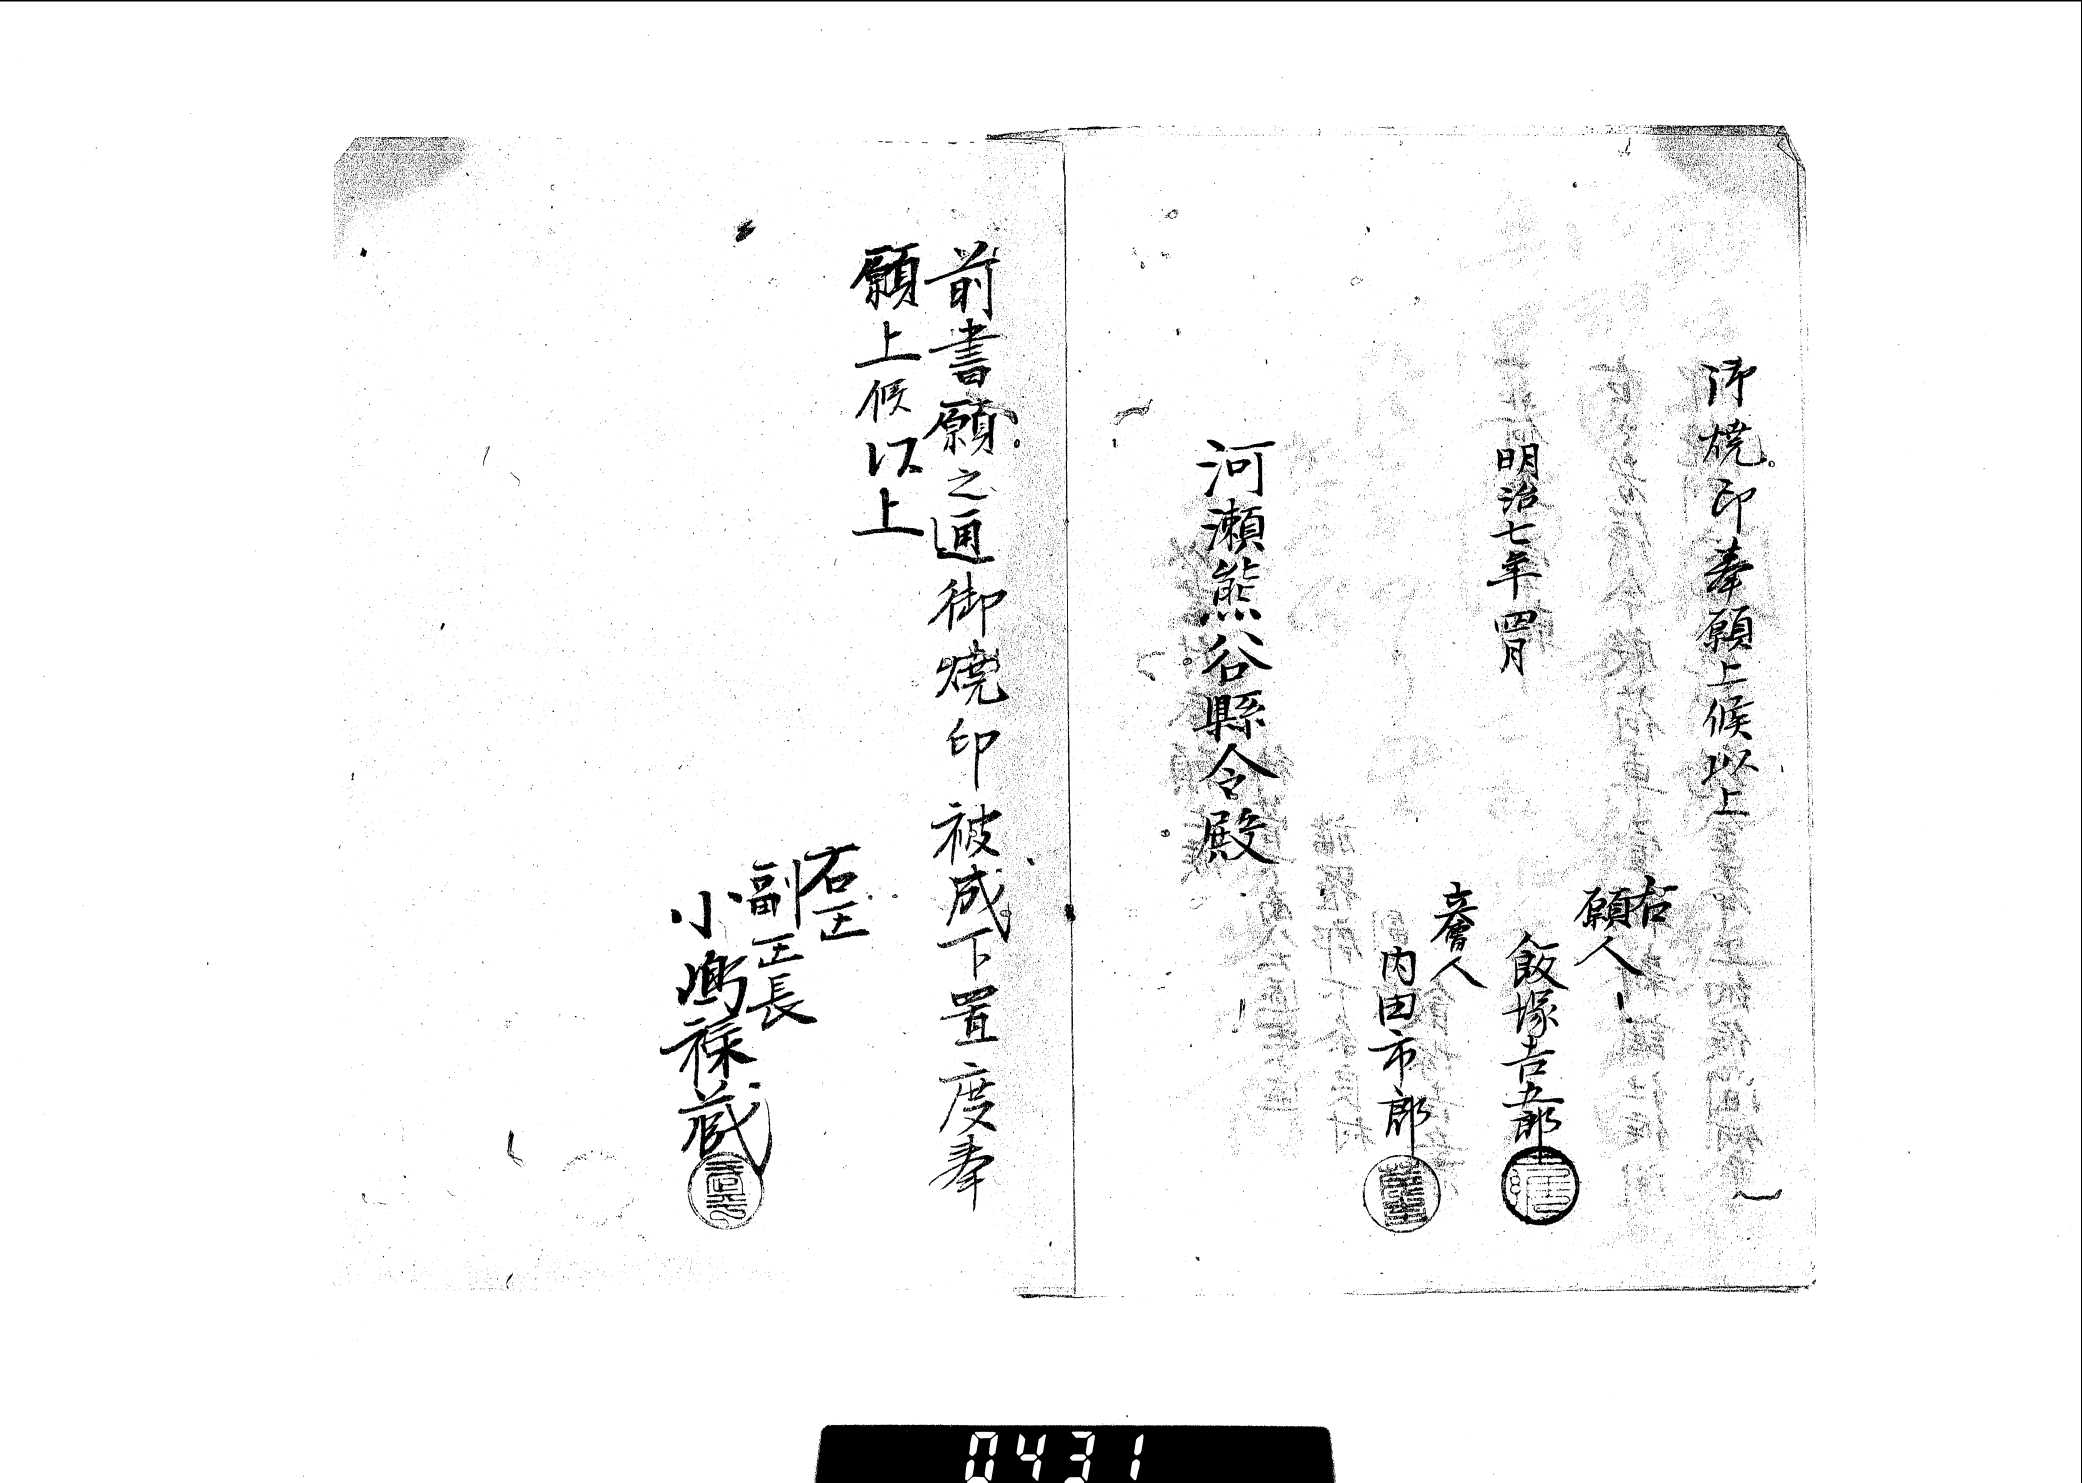 御焼印奉願上候以上
明治七年四月
右
願人
飯塚吉五郎
立會人
内田市郎
河瀬熊谷縣令殿
前書願之通御焼印被成下置度奉
願上候以上
右
副
小嶋禄蔵
0431